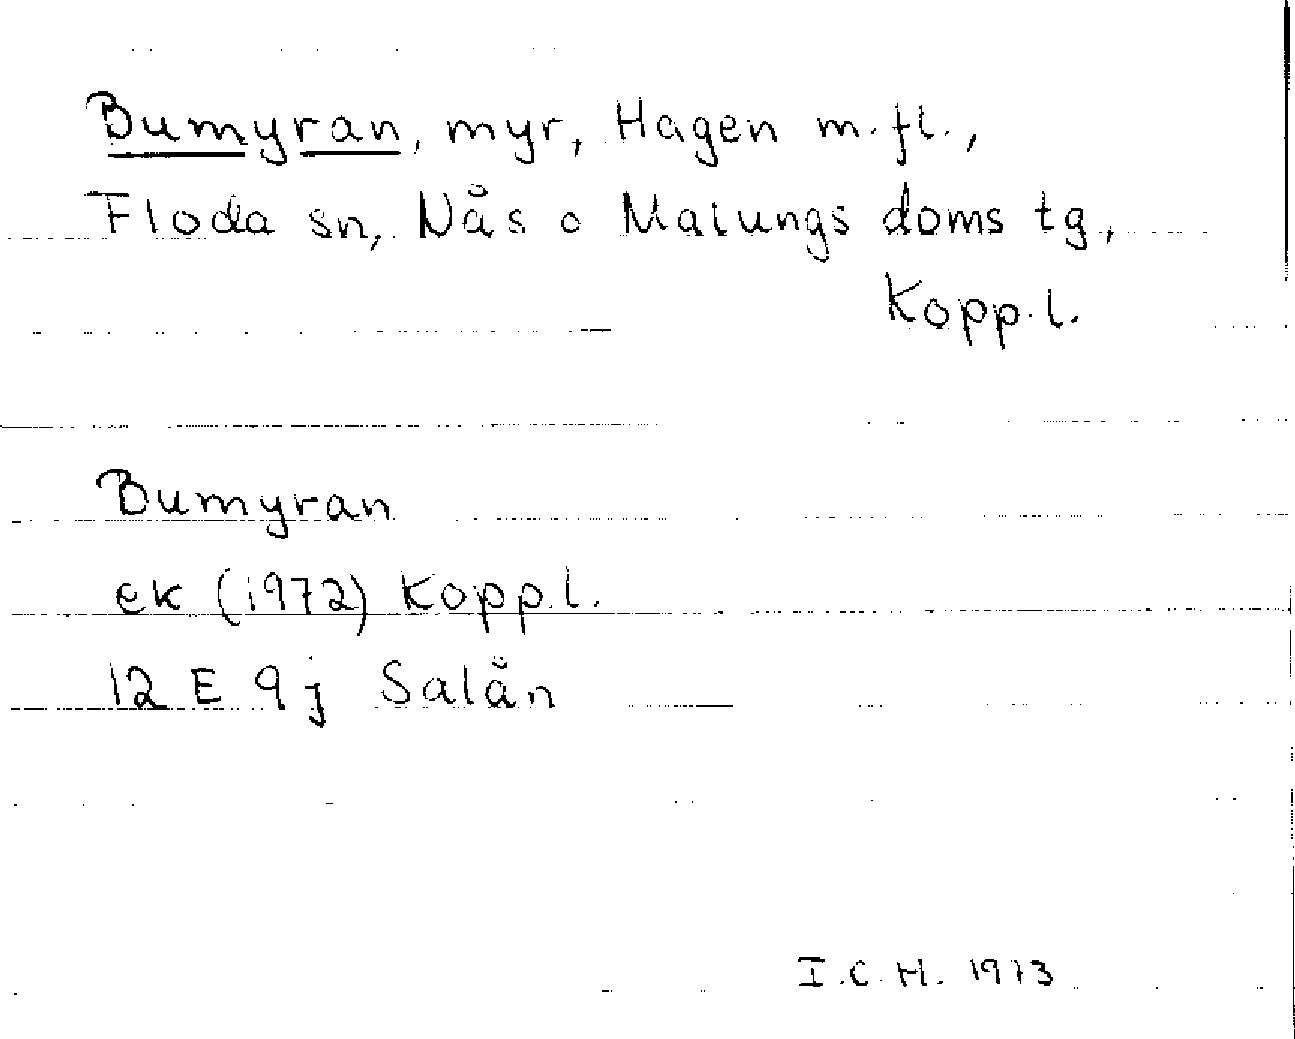 Bumyran, myr, Hagen m.fl.,
Floda sn, Nås o Malungs doms tg,
Kopp.l.
Bumyran
ek (1972) Kopp.l.
12 E 9j Salån
I.C.H. 1973